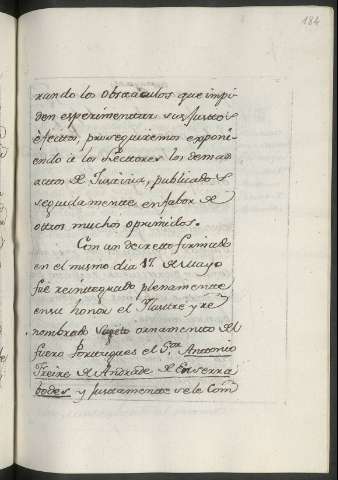 184
rando los obstáculos que impi
den esperimentar sus Justos
efectos, proseguiremos exponi
endo a los Lectores los demas
actos de Justicia, publicados
seguidamente en fabor de
otros muchos oprimidos.
Con un decreto firmado
en el mismo dia 17. de Mayo
fue reintegrado plenamente
en su honor el Ilustre y re
nombrado Sugeto ornamento del
fuero Portugues el S.or Antonio
Freire de Andrade de Enserra
bodes y Juntamente se le Com